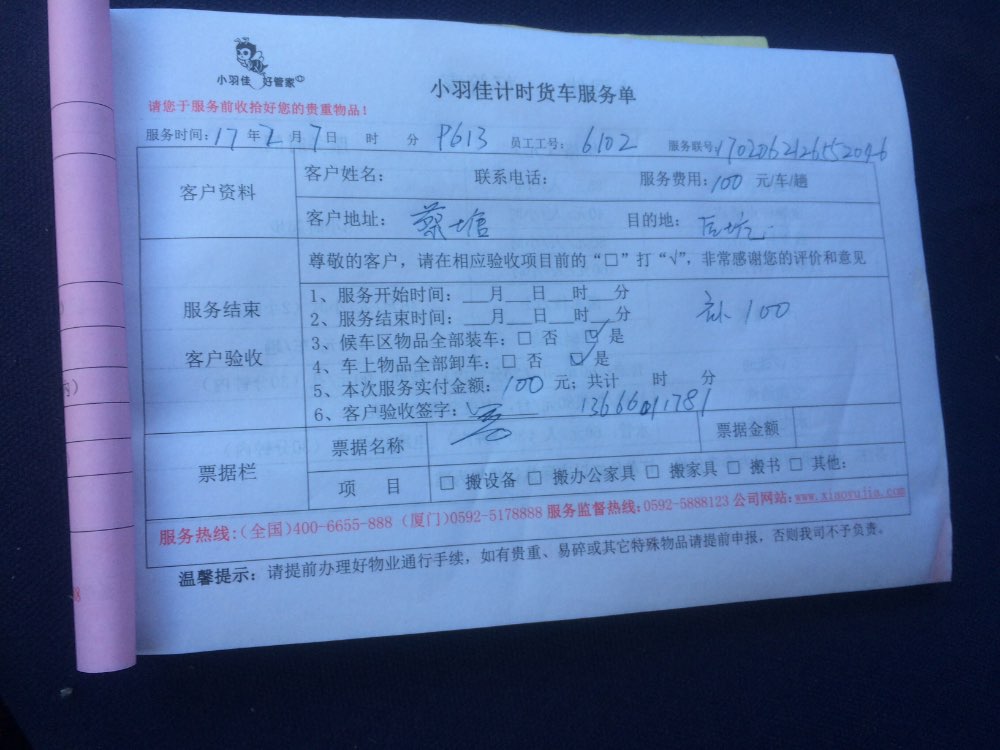 小羽佳 好管家
小羽佳计时货车服务单
请您于服务前收拾好您的贵重物品！
服务时间：17年2月7日 时 分 P613 员工工号：6102 服务联号
客户资料
客户姓名： 联系电话： 服务费用：100 元/车/趟
客户地址：蔡塘 目的地：
服务结束
客户验收
尊敬的客户，请在相应验收项目前的“□”打“√”，非常感谢您的评价和意见
1、服务开始时间：___月___日___时___分
2、服务结束时间：___月___日___时___分
100
3、候车区物品全部装车：□ 否 ☑ 是
4、车上物品全部卸车：□ 否 ☑ 是
5、本次服务实付金额：100 元；共计 时 分
6、客户验收签字： 13666011781
票据栏
票据名称 票据金额
项 目 □ 搬设备 □ 搬办公家具 □ 搬家具 □ 搬书 □ 其他：
服务热线：(全国)400-6655-888 (厦门)0592-5178888 服务监督热线：0592-5888123 公司网站：www.xiaoyujia.com
温馨提示：请提前办理好物业通行手续，如有贵重、易碎或其它特殊物品请提前申报，否则我司不予负责。